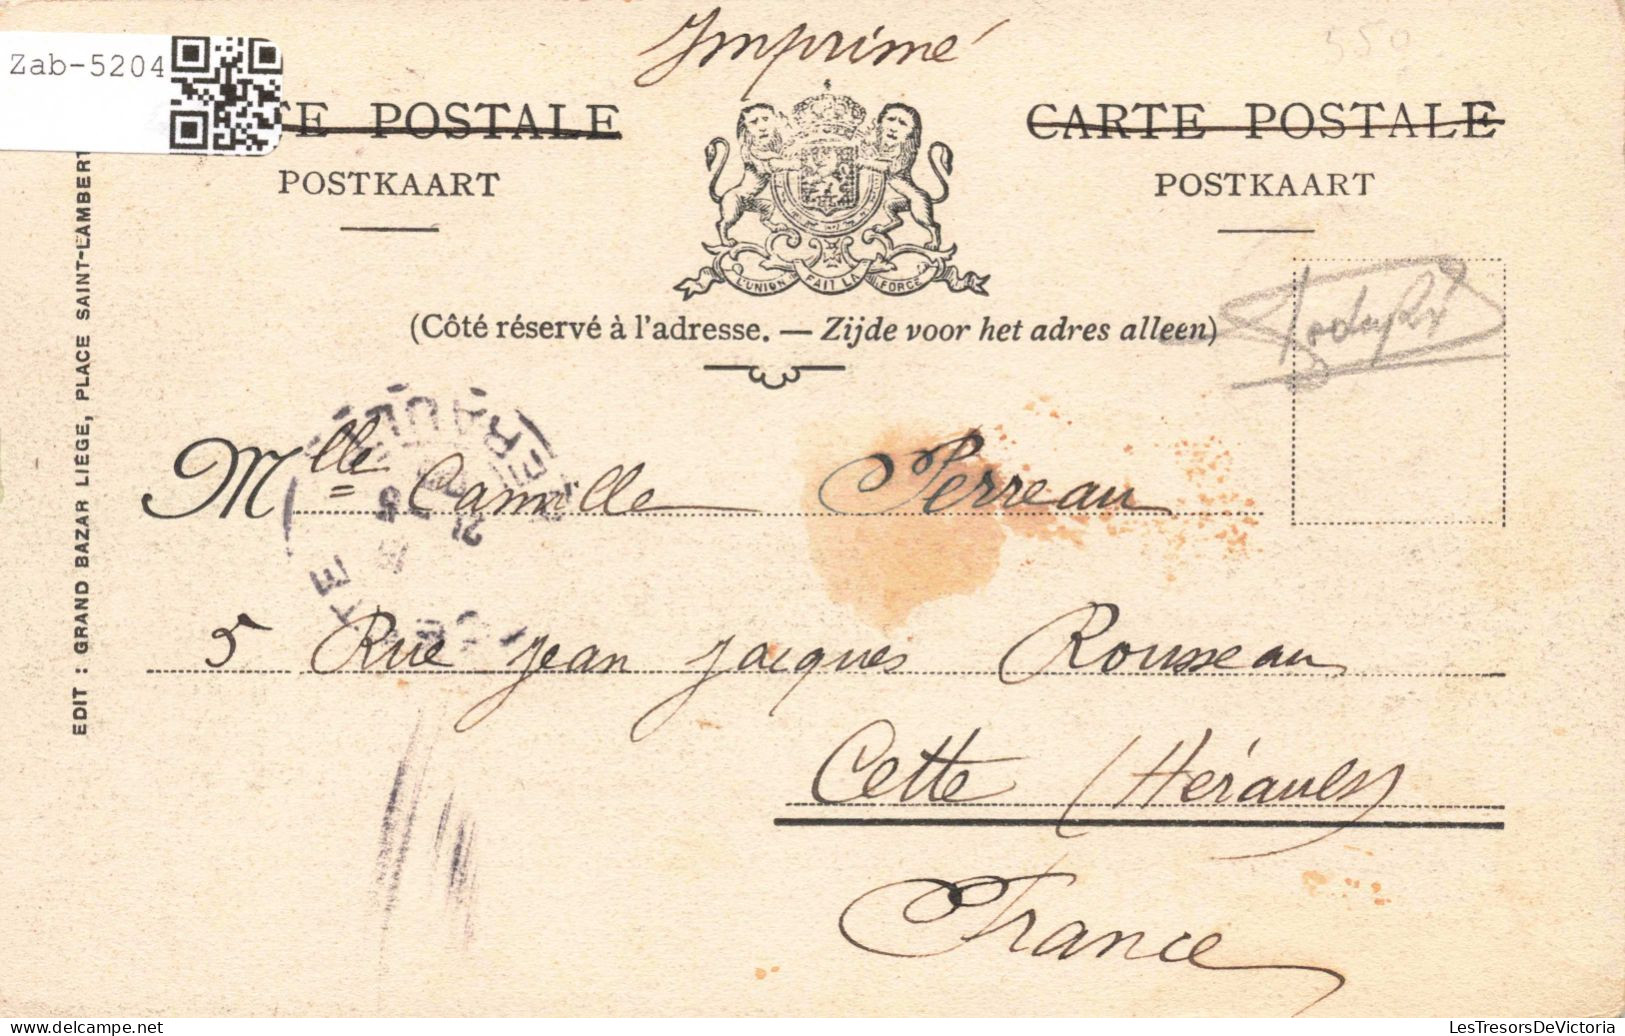 Imprimé
550
Zab-5204
TE POSTALE
POSTKAART
CARTE POSTALE
POSTKAART
L'UNION FAIT LA FORCE
(Côté réservé à l'adresse. — Zijde voor het adres alleen)
EDIT : GRAND BAZAR LIÉGE, PLACE SAINT-LAMBERT
Mlle Camille Perreau
5 Rue Jean Jacques Rousseau
Cette (Hérault)
France
HERAULT
LesTresorsDeVictoria